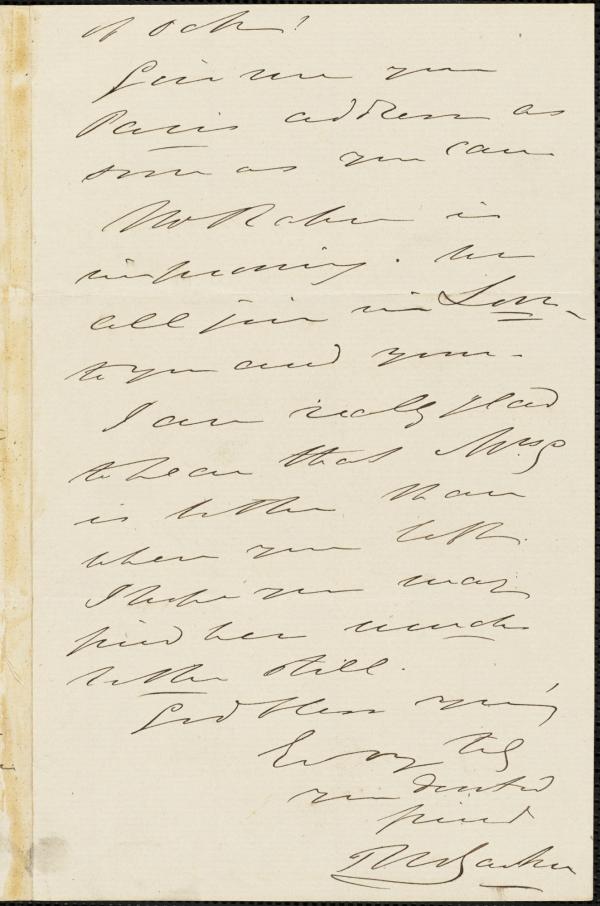 of
Give me your
Paris address as
soon as you can
is
improving. We
all join in Love
to you and yours.
I am really glad
to hear that Mrs G
is better than
when you left.
I hope you may
find her much
better still.
God bless you,
your devoted
friend